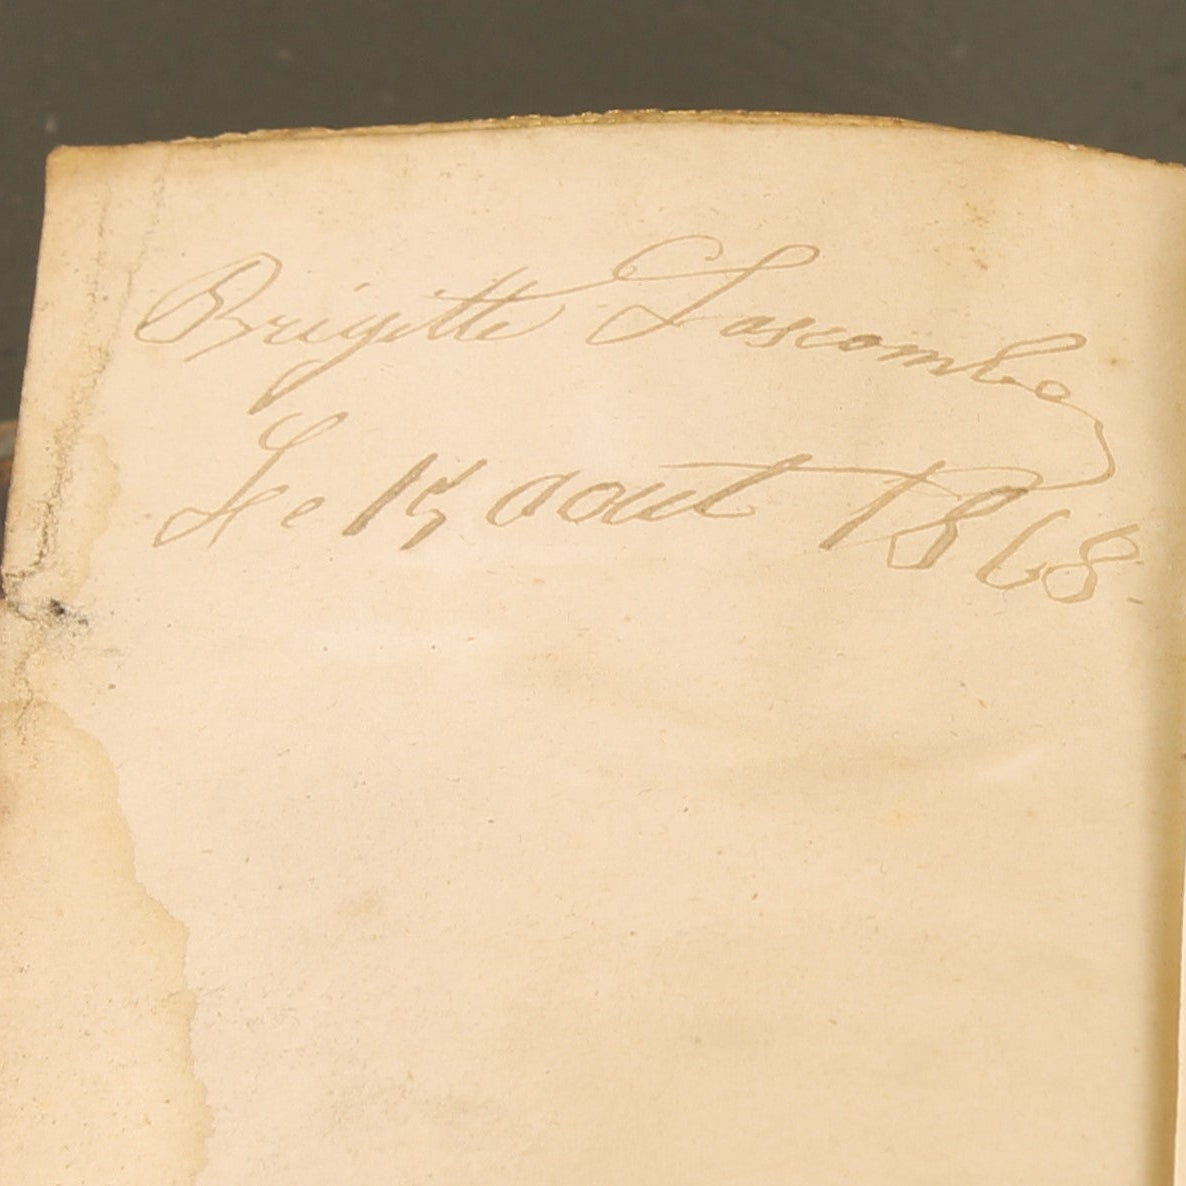 Brigitte Lascombe
Le 15 aout 1868.